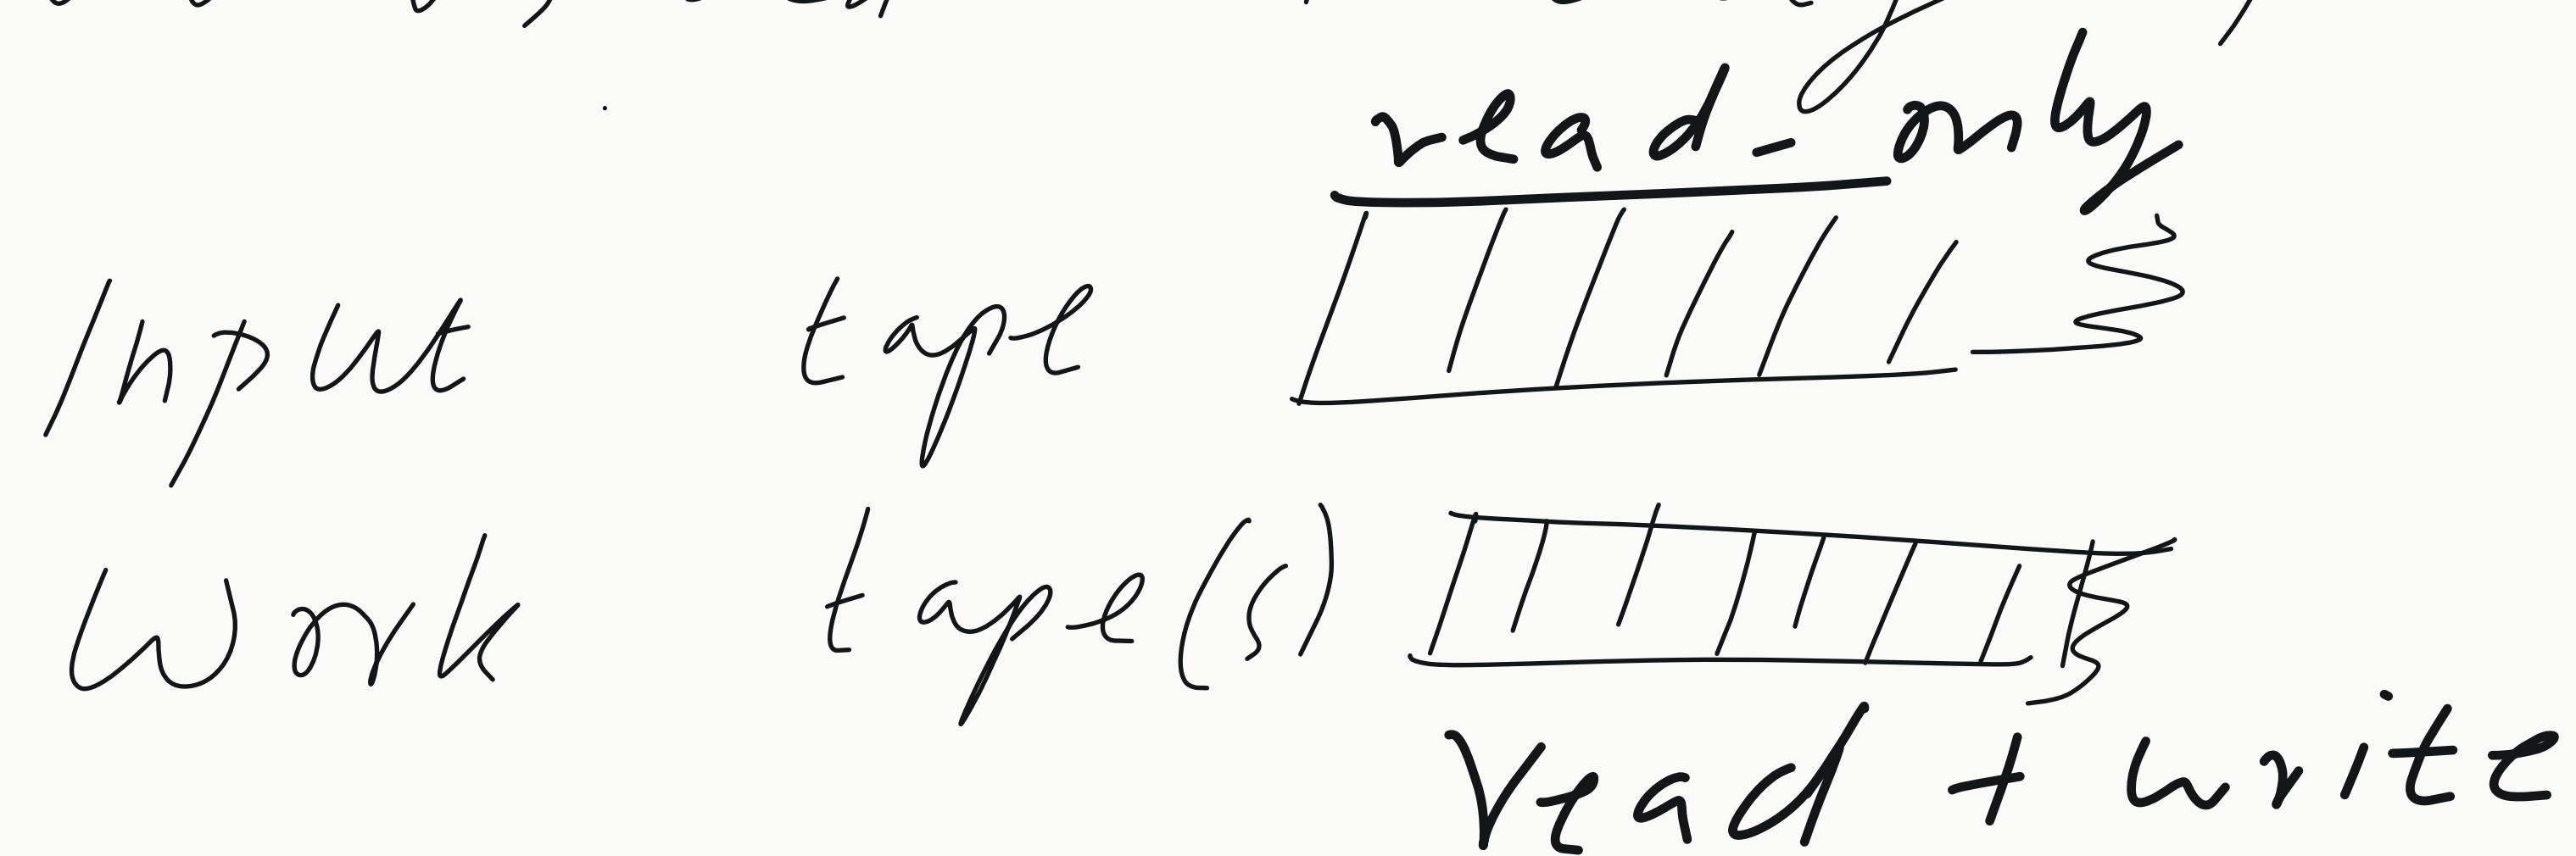 read-only
Input tape
Work tape(s)
read + write